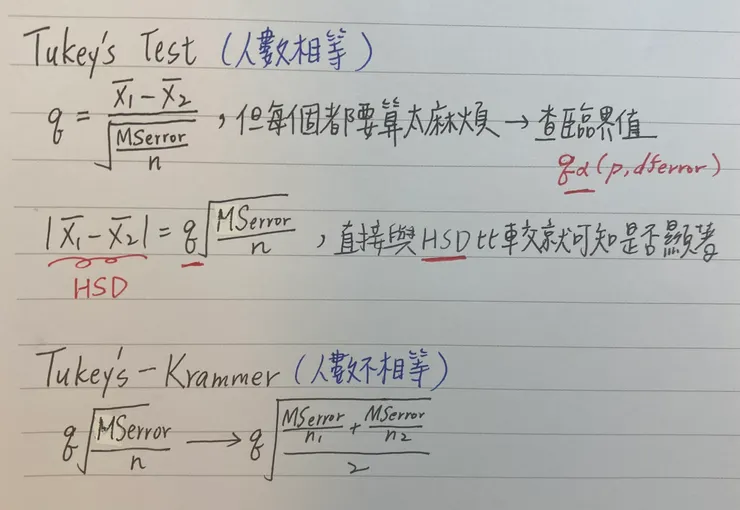 Tukey's Test (人數相等)
q = (X̄₁ - X̄₂) / √(MSerror / n) , 但每個都要算太麻煩 → 查臨界值
qα(p, dferror)
|X̄₁ - X̄₂| = q√(MSerror / n) , 直接與HSD比較就可知是否顯著
HSD
Tukey's - Krammer (人數不相等)
q√(MSerror / n) → q√((MSerror / n₁ + MSerror / n₂) / 2)